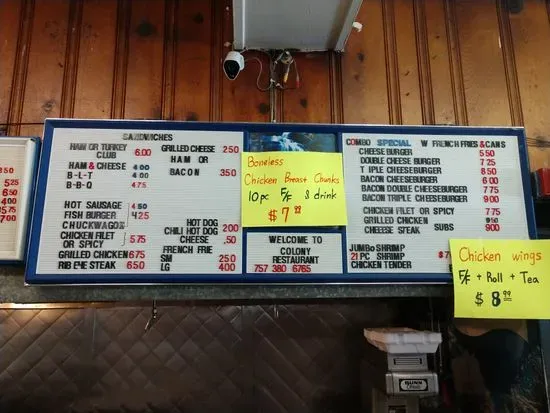 SANDWICHES
HAM OR TURKEY
CLUB 6.00
HAM & CHEESE 4.00
B-L-T 4.00
B-B-Q 4.75
HOT SAUSAGE 4.50
FISH BURGER 4.25
CHUCKWAGO
CHICKEN FILET
OR SPICY 5.75
GRILLED CHICKEN 6.75
RIB EYE STEAK 6.50
GRILLED CHEESE 2.50
HAM OR
BACON 3.50
HOT DOG 2.00
CHILI HOT DOG
CHEESE .50
FRENCH FRIE
SM 2.50
LG 4.00
Boneless
Chicken Breast Chunks
10 pc F/F & drink
$ 7.99
WELCOME TO
COLONY
RESTAURANT
757 380 6765
COMBO SPECIAL W FRENCH FRIES & CANS
CHEESEBURGER 5.50
DOUBLE CHEESEBURGER 7.25
T IPLE CHEESEBURGER 8.75
BACON CHEESEBURGER 6.00
BACON DOUBLE CHEESEBURGER 7.75
BACON TRIPLE CHEESEBURGER 9.00
CHICKEN FILET OR SPICY 7.75
GRILLED CHICKEN 9.50
CHEESE STEAK SUBS 9.00
JUMBO SHRIMP
21 PC SHRIMP $7
CHICKEN TENDER
Chicken wings
F/F + Roll + Tea
$ 8.99
BUNN